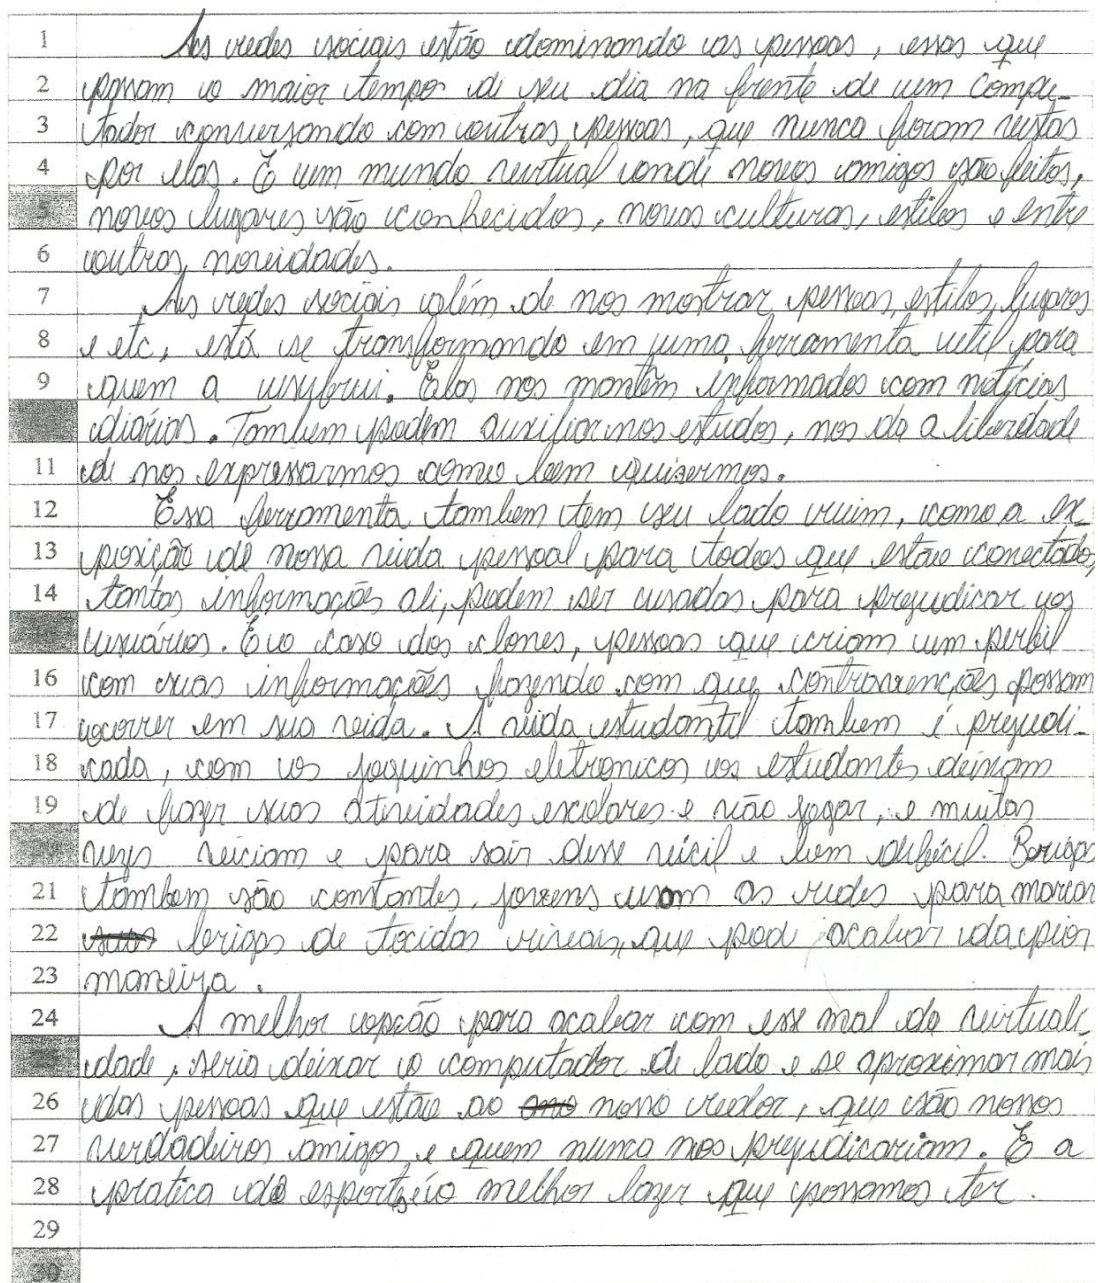 1 As redes sociais estão dominando as pessoas, essas que
2 passam o maior tempo de seu dia na frente de um compu-
3 tador conversando com outras pessoas, que nunca foram vistas
4 por elas. É um mundo virtual onde novos amigos são feitos,
5 novos lugares são conhecidos, novas culturas, estilos e entre
6 outros, novidades.
7 As redes sociais além de nos mostrar pessoas, estilos, lugares
8 e etc, está se transformando em uma ferramenta util para
9 quem a usufrui. Elas nos mantêm informados com notícias
diárias. Tambem podem auxiliar nos estudos, nos da a liberdade
11 de nos expressarmos como bem quisermos.
12 Essa ferramenta tambem tem seu lado ruim, como a ex-
13 posição de nossa vida pessoal para todos que estão conectado,
14 tantas informações ali, podem ser usadas para prejudicar os
usuários. É o caso dos clones, pessoas que criam um perfil
16 com suas informações fazendo com que, contravenções possam
17 ocorrer em sua vida. A vida estudantil tambem é prejudi-
18 cada, com os joguinhos eletronicos os estudantes deixam
19 de fazer suas atividades escolares e vão jogar, e muitas
vezes viciam e para sair desse vicil e bem dificil. Brigas
21 tambem são constantes, jovens usam as redes para marcar
22 brigas de tocidas rivais, que pod acabar da pior
23 maneira.
24 A melhor opção para acabar com esse mal da virtuali-
dade, seria deixar o computador de lado e se aproximar mais
26 das pessoas que estão ao nosso redor, que são nossos
27 verdadeiros amigos e quem nunca nos prejudicariam. E a
28 pratica de esportes é o melhor lazer que possamos ter.
29
30